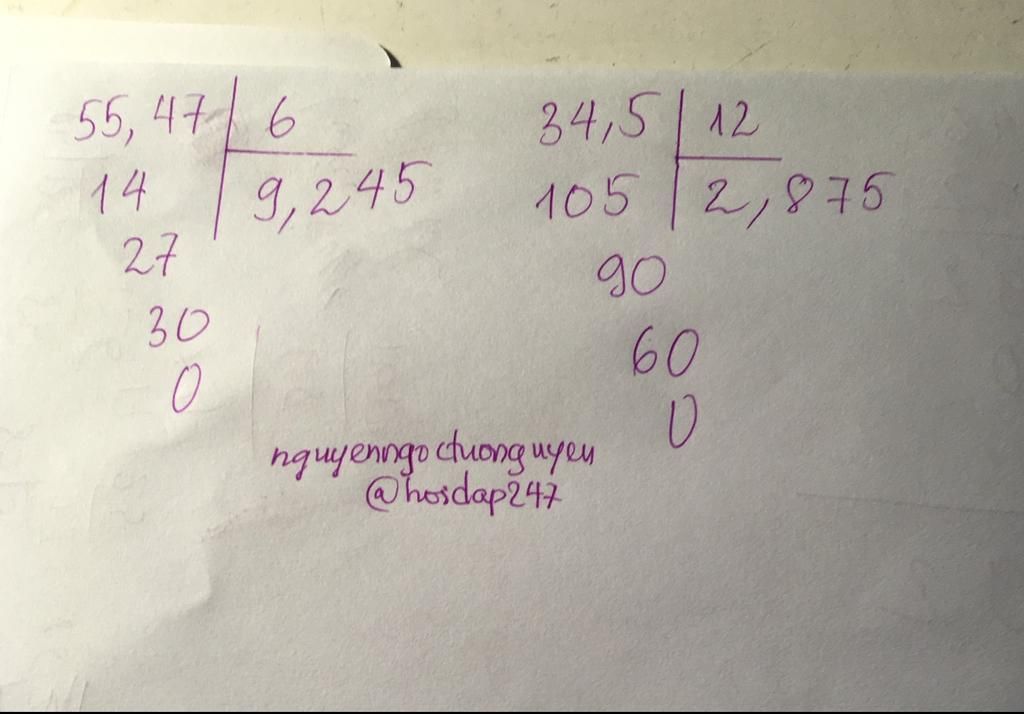 55,47 6
14 9,245
27
30
0
34,5 12
105 2,875
90
60
0
nguyenngoctuonguyen
@hoidap247